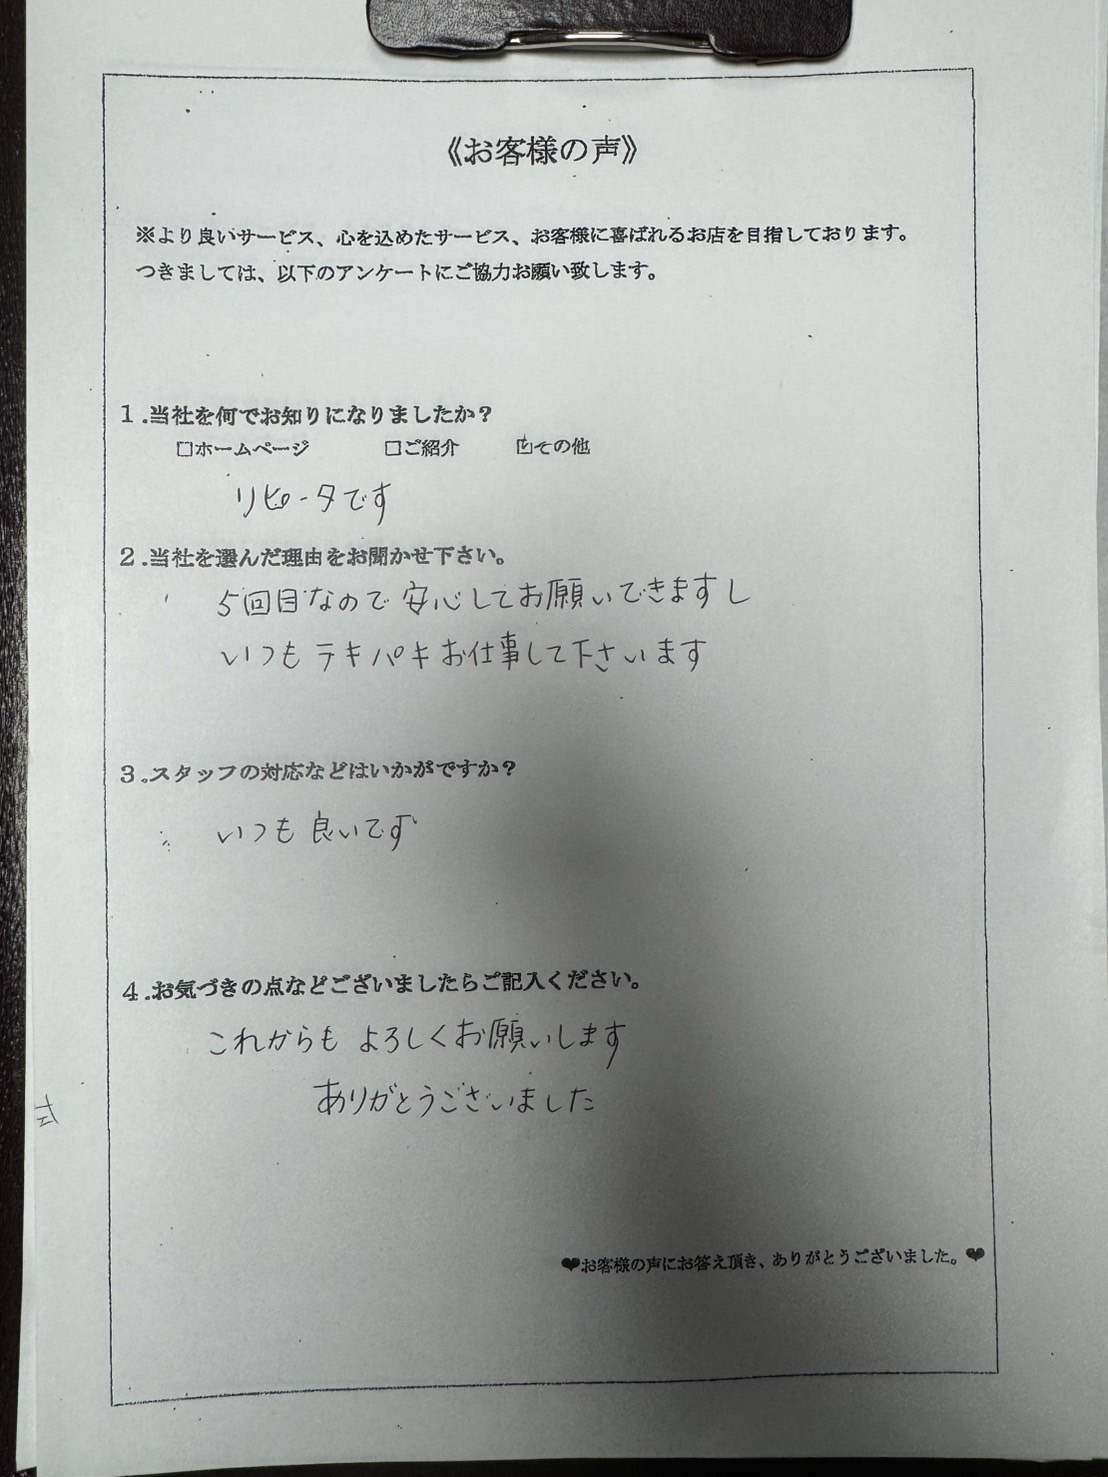 《お客様の声》
※より良いサービス、心を込めたサービス、お客様に喜ばれるお店を目指しております。
つきましては、以下のアンケートにご協力お願い致します。
1.当社を何でお知りになりましたか?
□ホームページ □ご紹介 ☑その他
リピータです
2.当社を選んだ理由をお聞かせ下さい。
5回目なので安心してお願いできますし
いつもテキパキお仕事して下さいます
3.スタッフの対応などはいかがですか?
いつも良いです
4.お気づきの点などございましたらご記入ください。
これからもよろしくお願いします
ありがとうございました
❤お客様の声にお答え頂き、ありがとうございました。❤